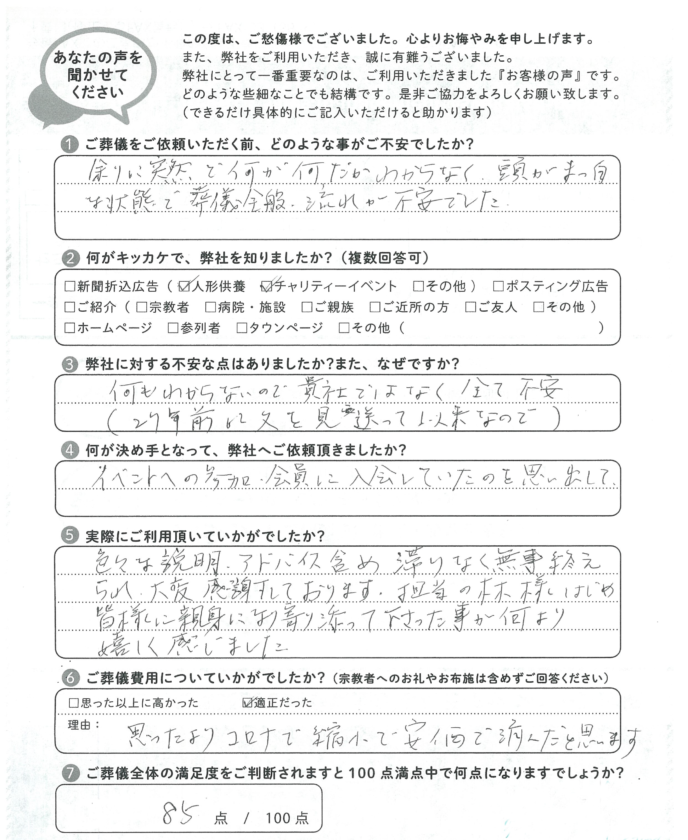 あなたの声を
聞かせて
ください
この度は、ご愁傷様でございました。心よりお悔やみを申し上げます。
また、弊社をご利用いただき、誠に有難うございました。
弊社にとって一番重要なのは、ご利用いただきました『お客様の声』です。
どのような些細なことでも結構です。是非ご協力をよろしくお願い致します。
（できるだけ具体的にご記入いただけると助かります）
1 ご葬儀をご依頼いただく前、どのような事がご不安でしたか？
余りに突然で何が何だかわからなく、頭がまっ白
な状態で葬儀全般、流れが不安でした
2 何がキッカケで、弊社を知りましたか？（複数回答可）
□新聞折込広告（ ☑人形供養 ☑チャリティーイベント □その他 ） □ポスティング広告
□ご紹介（ □宗教者 □病院・施設 □ご親族 □ご近所の方 □ご友人 □その他 ）
□ホームページ □参列者 □タウンページ □その他（ ）
3 弊社に対する不安な点はありましたか？また、なぜですか？
何もわからないので貴社ではなく全て不安
（27年前に父を見送って以来なので）
4 何が決め手となって、弊社へご依頼頂きましたか？
イベントへの参加、会員に入会していたのを思い出して、
5 実際にご利用頂いていかがでしたか？
色々な説明、アドバイス含め滞りなく無事終え
られ、大変感謝しております。担当の林様はじめ
皆様に親身になり寄り添って下さった事が何より
嬉しく感じました
6 ご葬儀費用についていかがでしたか？（宗教者へのお礼やお布施は含めずご回答ください）
□思った以上に高かった ☑適正だった
理由：
思ったよりコロナで縮小で安価で済んだと思います
7 ご葬儀全体の満足度をご判断されますと100点満点中で何点になりますでしょうか？
85 点 / 100点